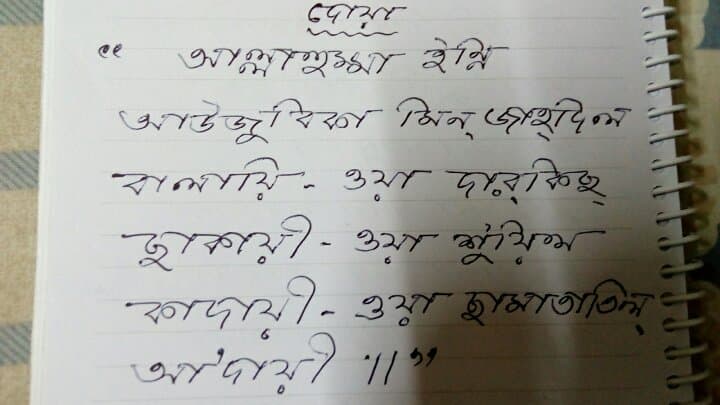 দোয়া
“ আল্লাহুম্মা ইন্নি
আউজুবিকা মিন্ জাহ্দিল
বালায়ি - ওয়া দার্কিছ্
ছুাকায়ী - ওয়া শুঁয়িল
কাদায়ী - ওয়া ছামাতাতিল্
আ'দায়ী ।।”